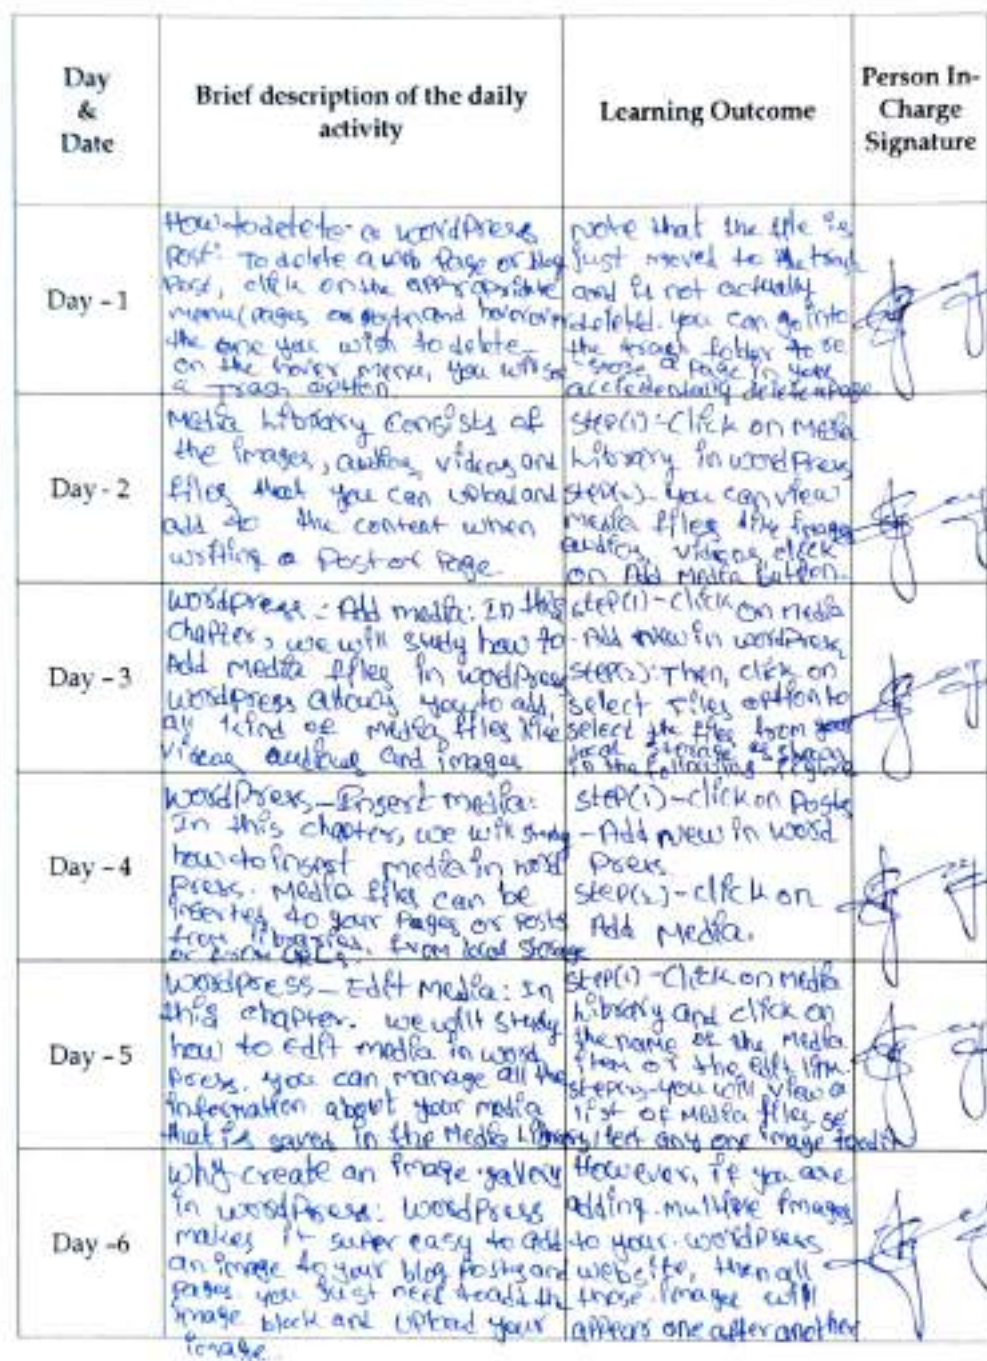 Day
&
Date
Brief description of the daily
activity
Learning Outcome
Person In-
Charge
Signature
Day - 1
How to delete a wordPress
Post: To delete a web Page or blog
Post, click on the appropriate
menu (pages or posts) and hover over
the one you wish to delete
on the hover menu, you will see
a Trash option.
Note that the file is
just moved to the trash
and is not actually
deleted. you can go into
the trash folder to re
-store a Page in you
accidentally delete a page
Day - 2
Media Library Consists of
the images, audios, videos and
files that you can upload and
add to the content when
writing a Post or Page
step(1)-Click on Media
Library in wordPress
step(2)- you can view
Media files like images
audios, videos, click
on Add Media button.
Day - 3
wordpress - Add media: In this
chapter, we will study how to
Add Media files in wordPress
wordpress allows you to add,
all kind of media files like
videos audious and images
step(1)-click on Media
-Add New in wordPress
step(2): Then, click on
select Files option to
select the files from your
local storage as shown
in the following figure
Day - 4
wordPress-Insert media:
In this chapter, we will study
how to insert media in word
Press. Media files can be
inserted to your Pages or posts
from libraries, from local storage
or from URLs.
step(1)-click on Posts
-Add New in word
Press
step(2)-click on
Add Media.
Day - 5
wordpress-Edit Media: In
this chapter. we will study
how to edit media in word
Press. you can manage all the
information about your media
that is saved in the Media Library
step(1)-Click on Media
Library and click on
the name of the Media
item or the edit link.
step(2)-you will view a
list of Media files, se
lect any one image to edit
Day -6
why create an image gallery
in wordpress: wordPress
makes it super easy to add
an image to your blog Posts and
Pages. you just need to add the
image block and upload your
image.
However, if you are
adding multiple images
to your wordpress
website, then all
those images will
appears one after another